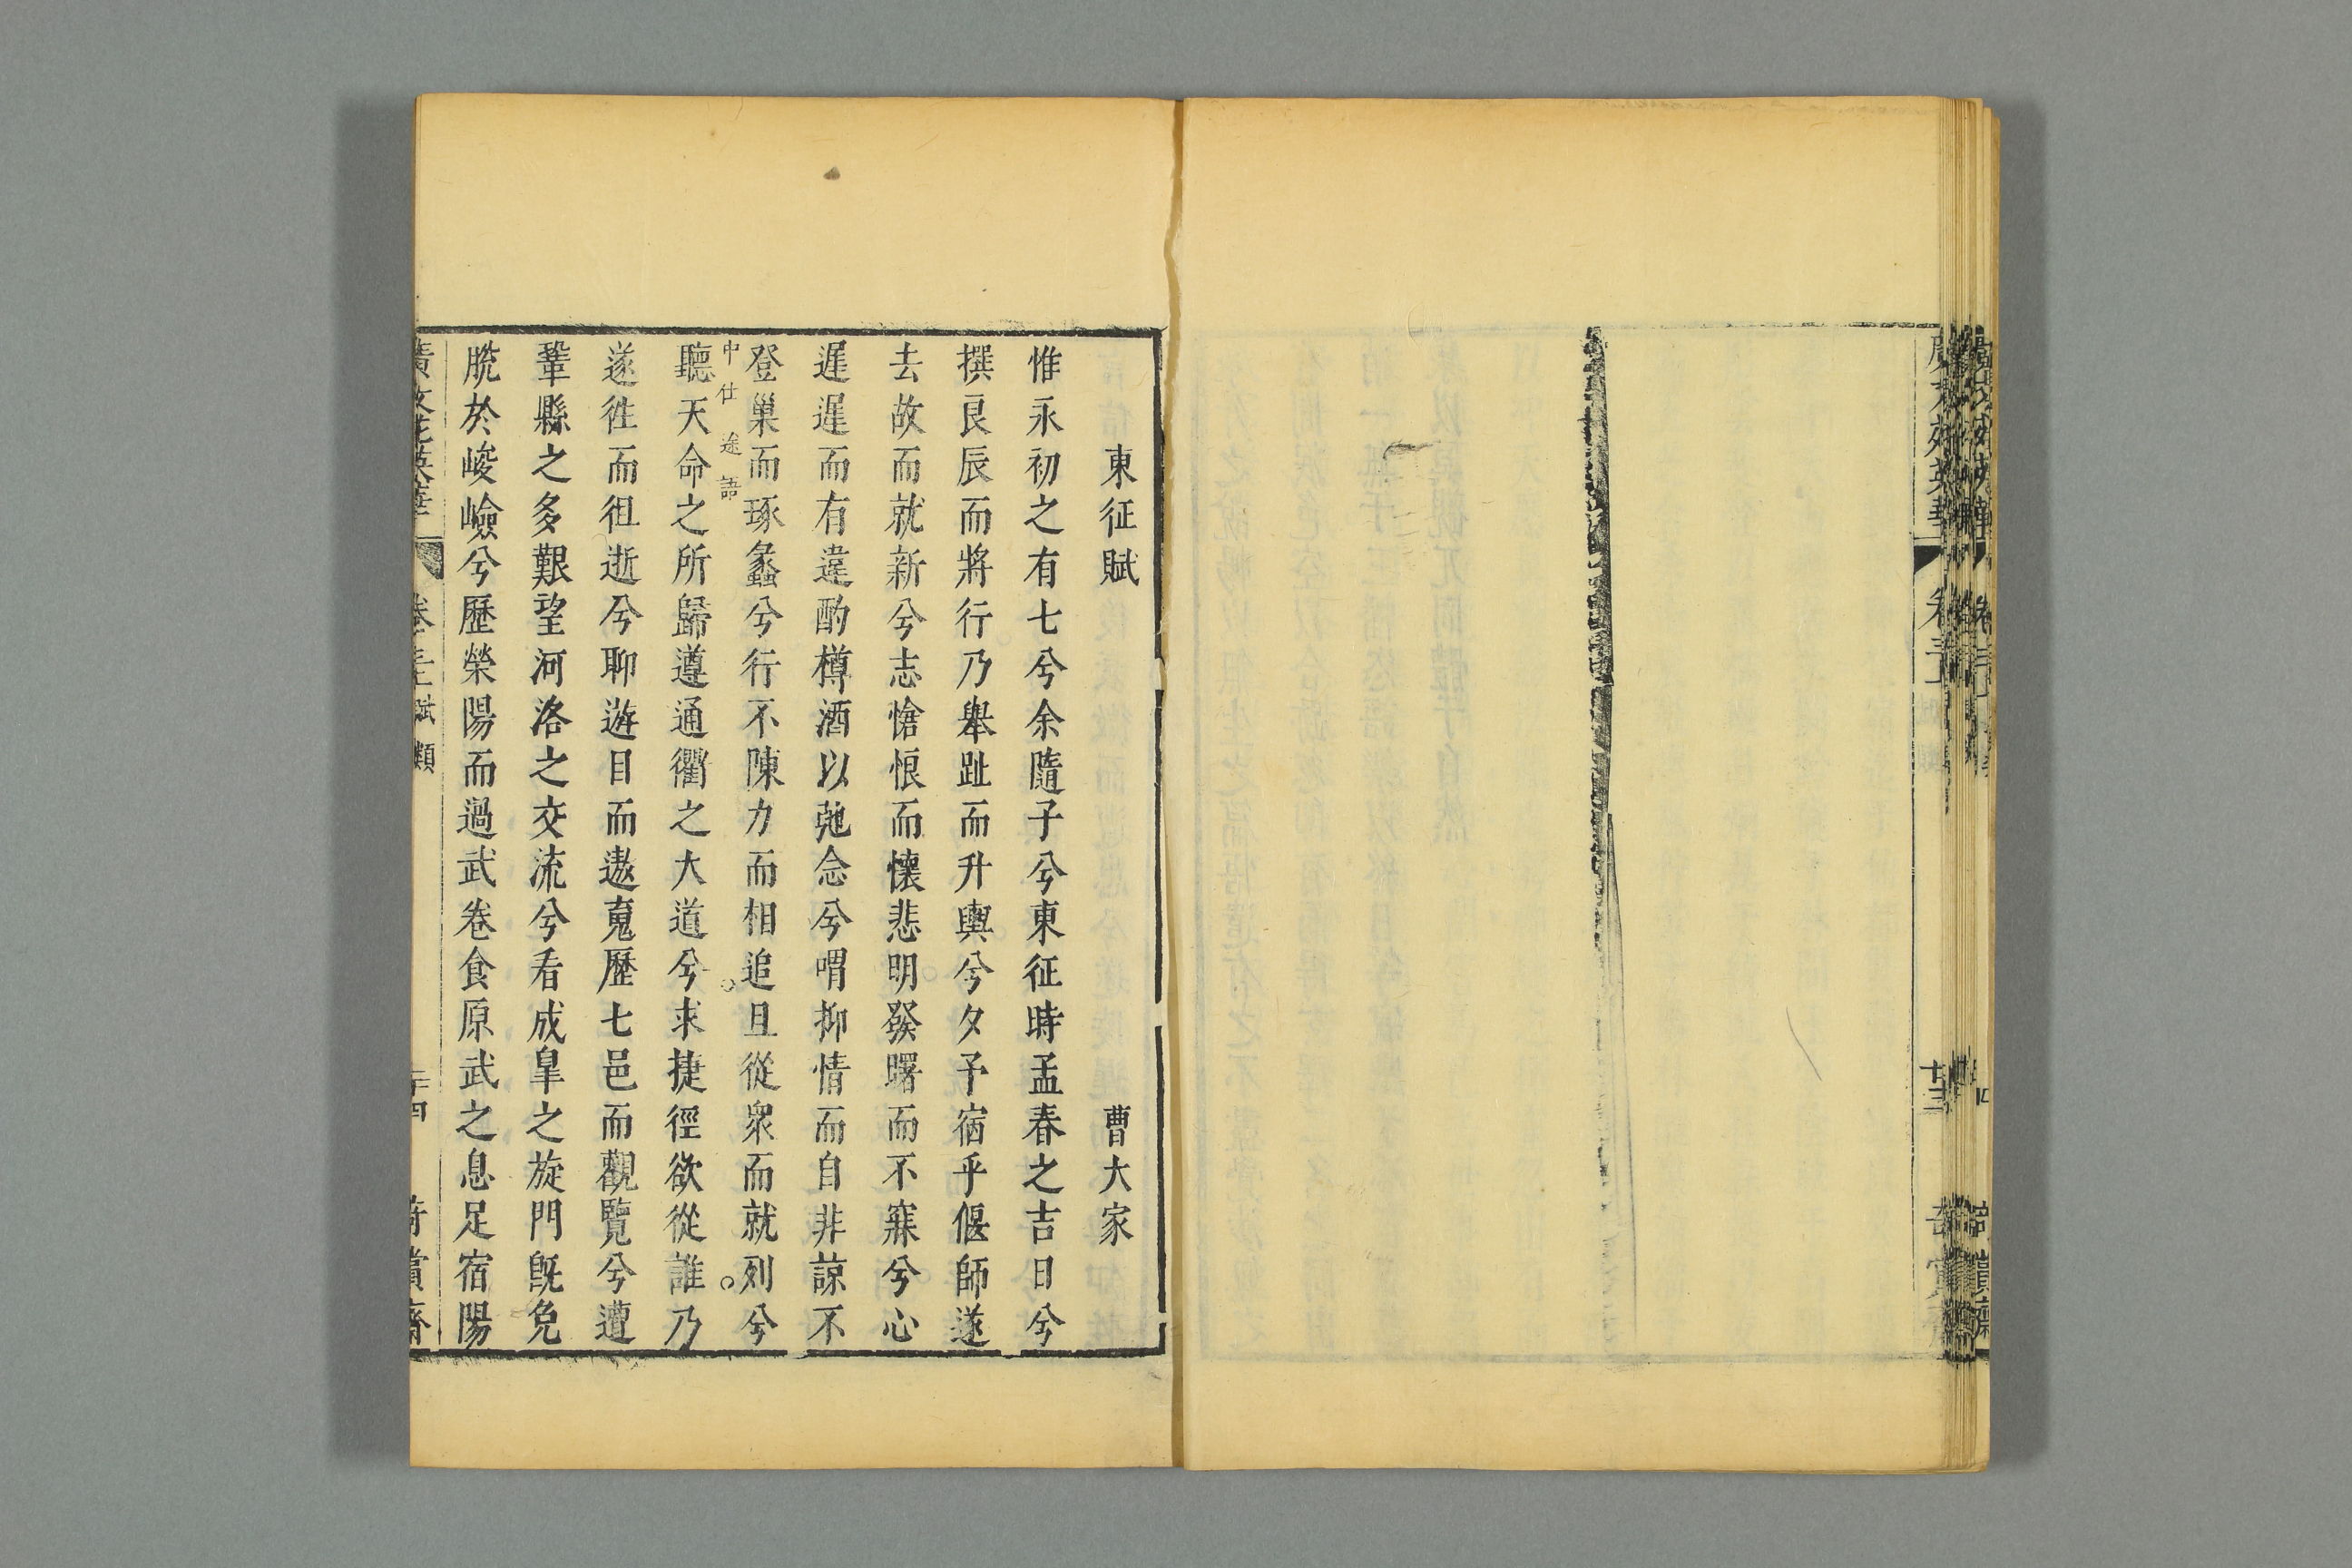 東征賦 曹大家
惟永初之有七兮余隨子兮東征時孟春之吉日兮
撰良辰而將行乃舉趾而升輿兮夕予宿乎偃師遂
去故而就新兮志愴悢而懷悲明發曙而不寐兮心
遲遲而有違酌樽酒以弛念兮喟抑情而自非諒不
登巢而琢蠡兮行不陳力而相追且從衆而就列兮
中仕途語
聽天命之所歸遵通衢之大道兮求捷徑欲從誰乃
遂徃而徂逝兮聊遊目而遨䰟歷七邑而觀覽兮遭
鞏縣之多艱望河洛之交流兮看成臯之旋門既免
脫於峻嶮兮歷榮陽而過武卷食原武之息足宿陽
廣文苑英華 卷 賦類 二十四 奇賞齋